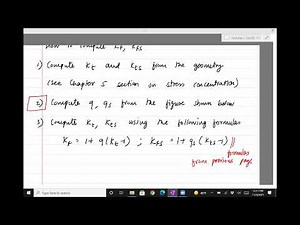 How to compute Kf, Kfs
1) Compute Kt and Kts from the geometry
(see Chapter 5 section on stress concentration)
2) Compute q, qs from the figure shown below
3) Compute Kf, Kfs using the following formulas
Kf = 1 + q(Kt-1) ; Kfs = 1 + qs(Kts-1)
formulas
from previous page